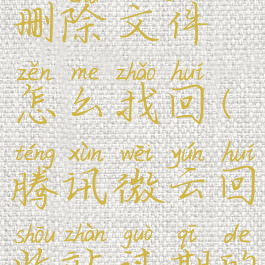 删除文件
zěn me zhǎo huí
怎么找回(
téng xùn wēi yún huí
腾讯微云回
shōu zhàn guo qī de
收站过期的